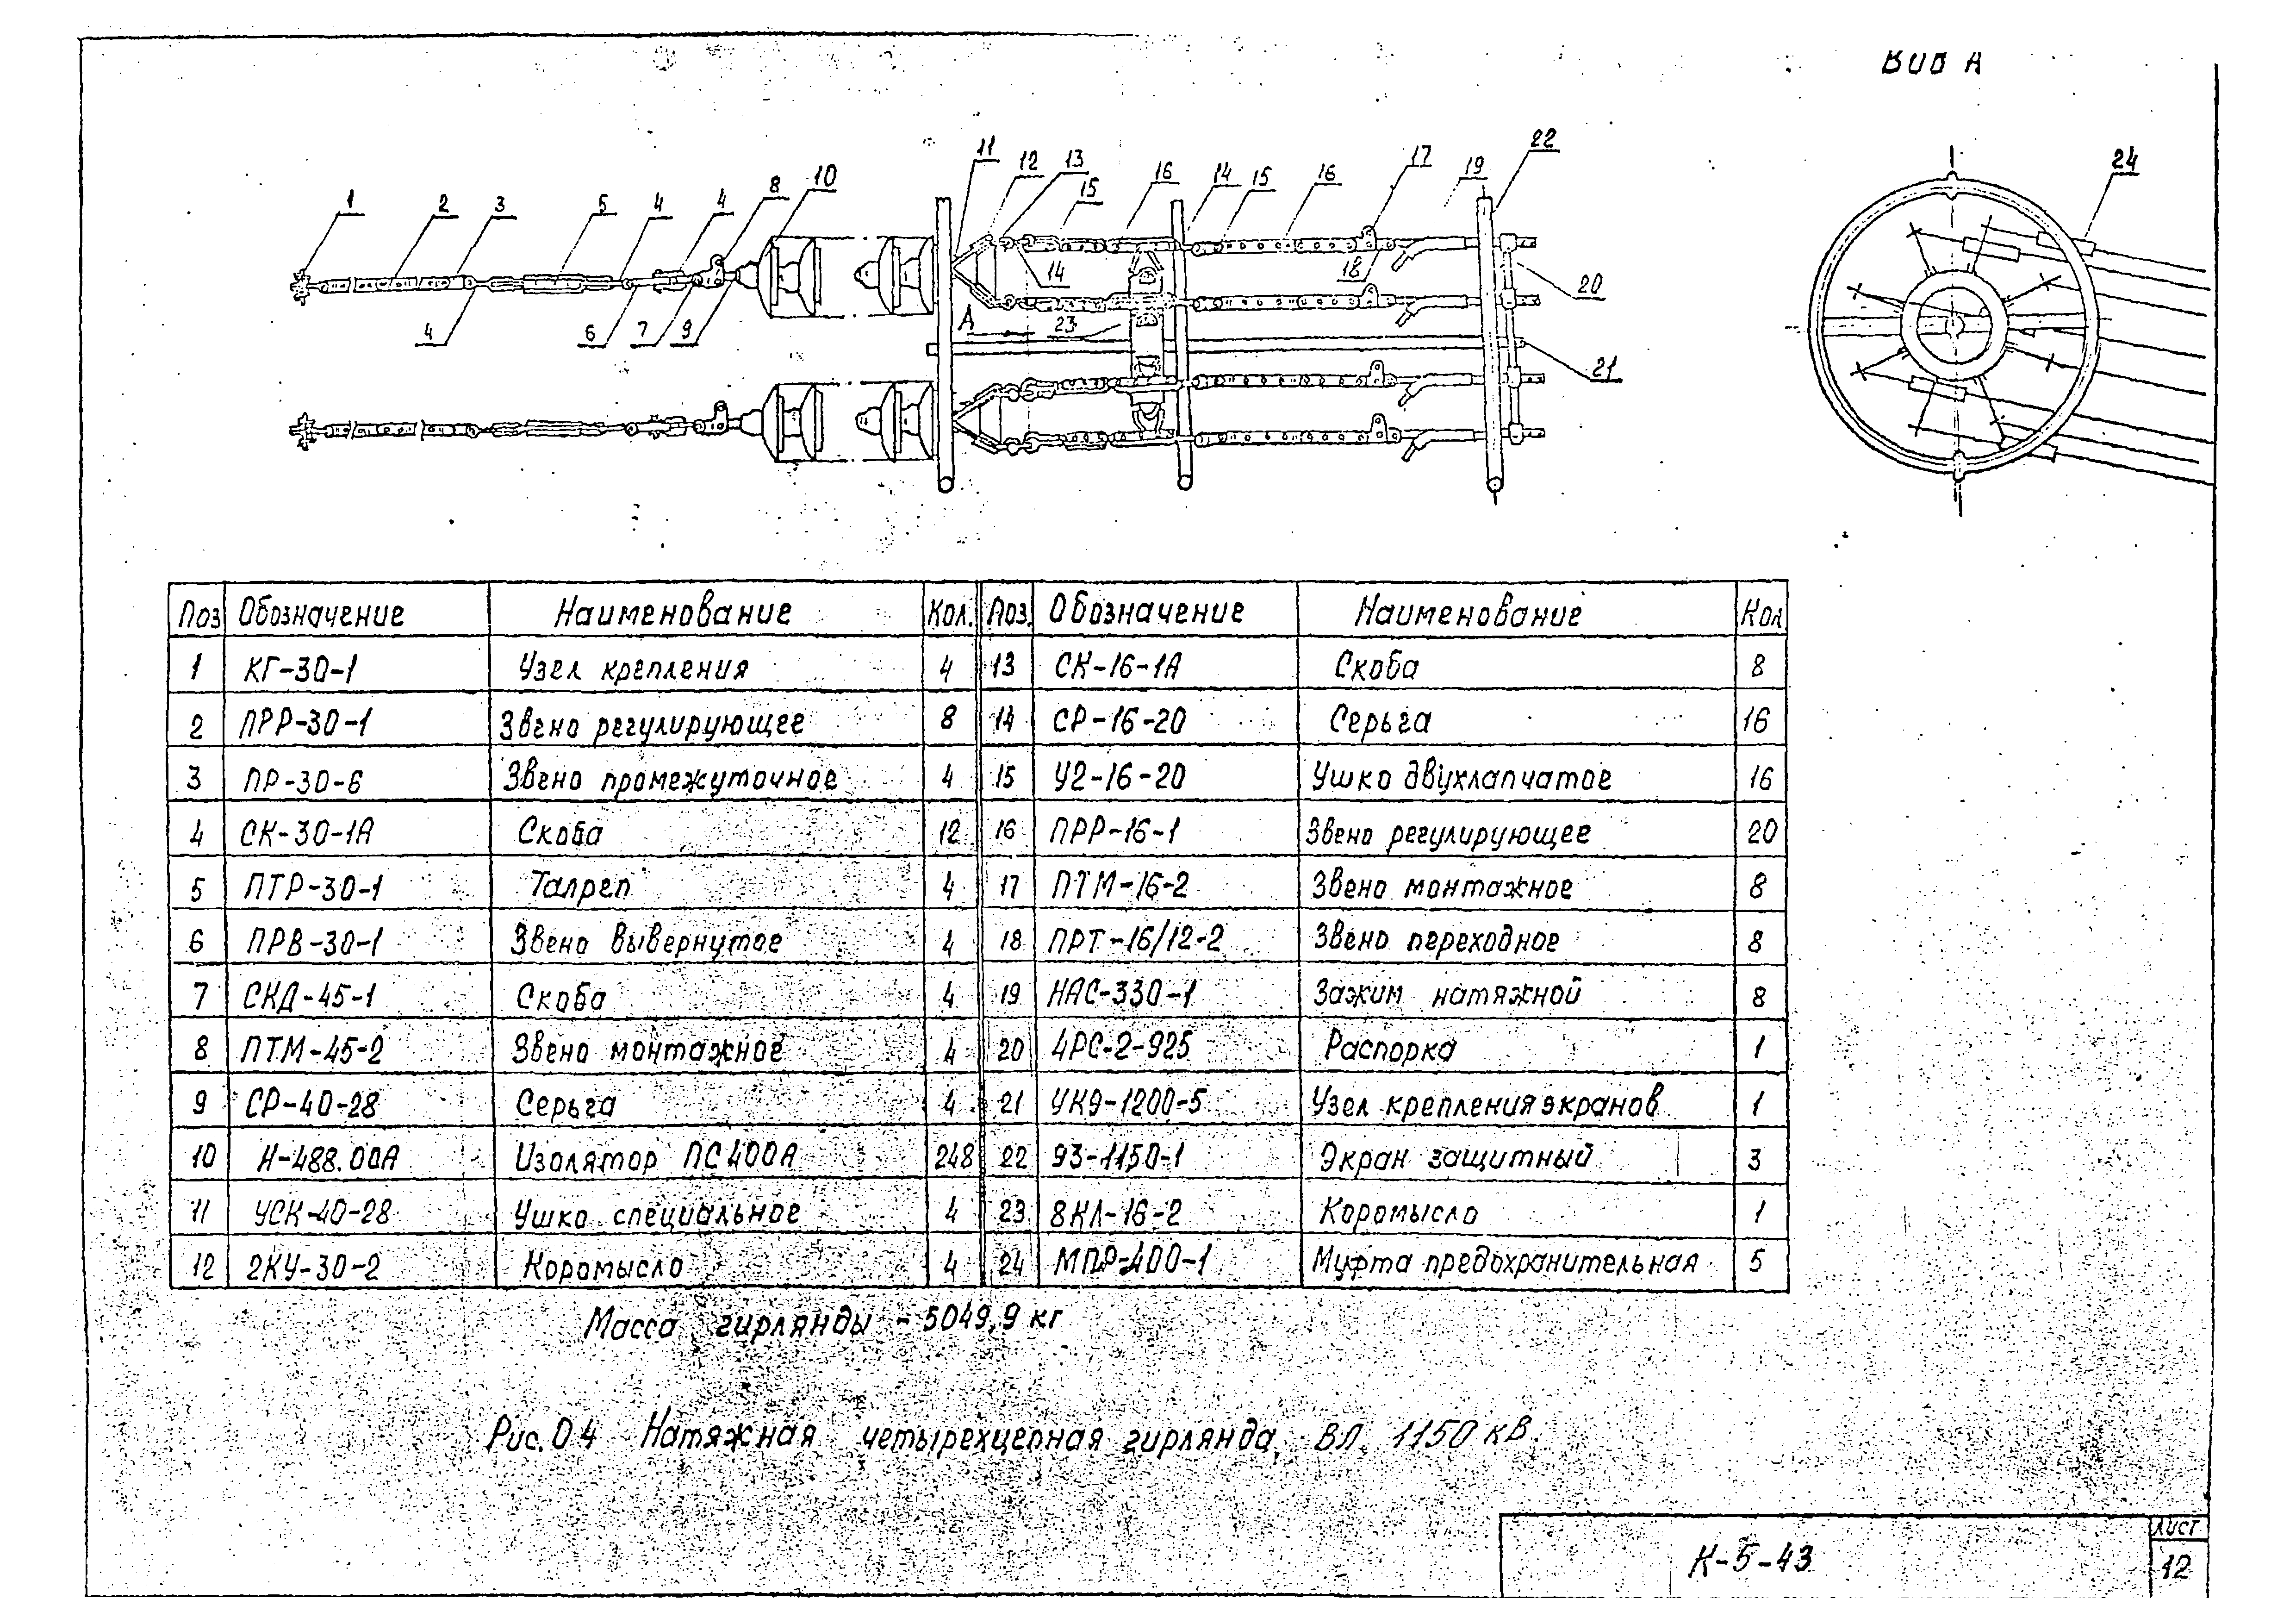 Вид А
11 12 13 16 14 15 16 17 19 22 24
1 2 3 5 4 4 8 10 15
14 18 20
4 6 7 9 А 23 21
Поз Обозначение Наименование Кол. Поз. Обозначение Наименование Кол
1 КГ-30-1 Узел крепления 4 13 СК-16-1А Скоба 8
2 ПРР-30-1 Звено регулирующее 8 14 СР-16-20 Серьга 16
3 ПР-30-6 Звено промежуточное 4 15 У2-16-20 Ушко двухлапчатое 16
4 СК-30-1А Скоба 12 16 ПРР-16-1 Звено регулирующее 20
5 ПТР-30-1 Талреп 4 17 ПТМ-16-2 Звено монтажное 8
6 ПРВ-30-1 Звено вывернутое 4 18 ПРТ-16/12-2 Звено переходное 8
7 СКД-45-1 Скоба 4 19 НАС-330-1 Зажим натяжной 8
8 ПТМ-45-2 Звено монтажное 4 20 4РС-2-925 Распорка 1
9 СР-40-28 Серьга 4 21 УКЭ-1200-5 Узел крепления экранов 1
10 И-488.00А Изолятор ПС400А 248 22 ЭЗ-1150-1 Экран защитный 3
11 УСК-40-28 Ушко специальное 4 23 8КЛ-16-2 Коромысло 1
12 2КУ-30-2 Коромысло 4 24 МПР-400-1 Муфта предохранительная 5
Масса гирлянды - 5049,9 кг
Рис. 04 Натяжная четырехцепная гирлянда ВЛ 1150 кВ.
К-5-43
Лист
12